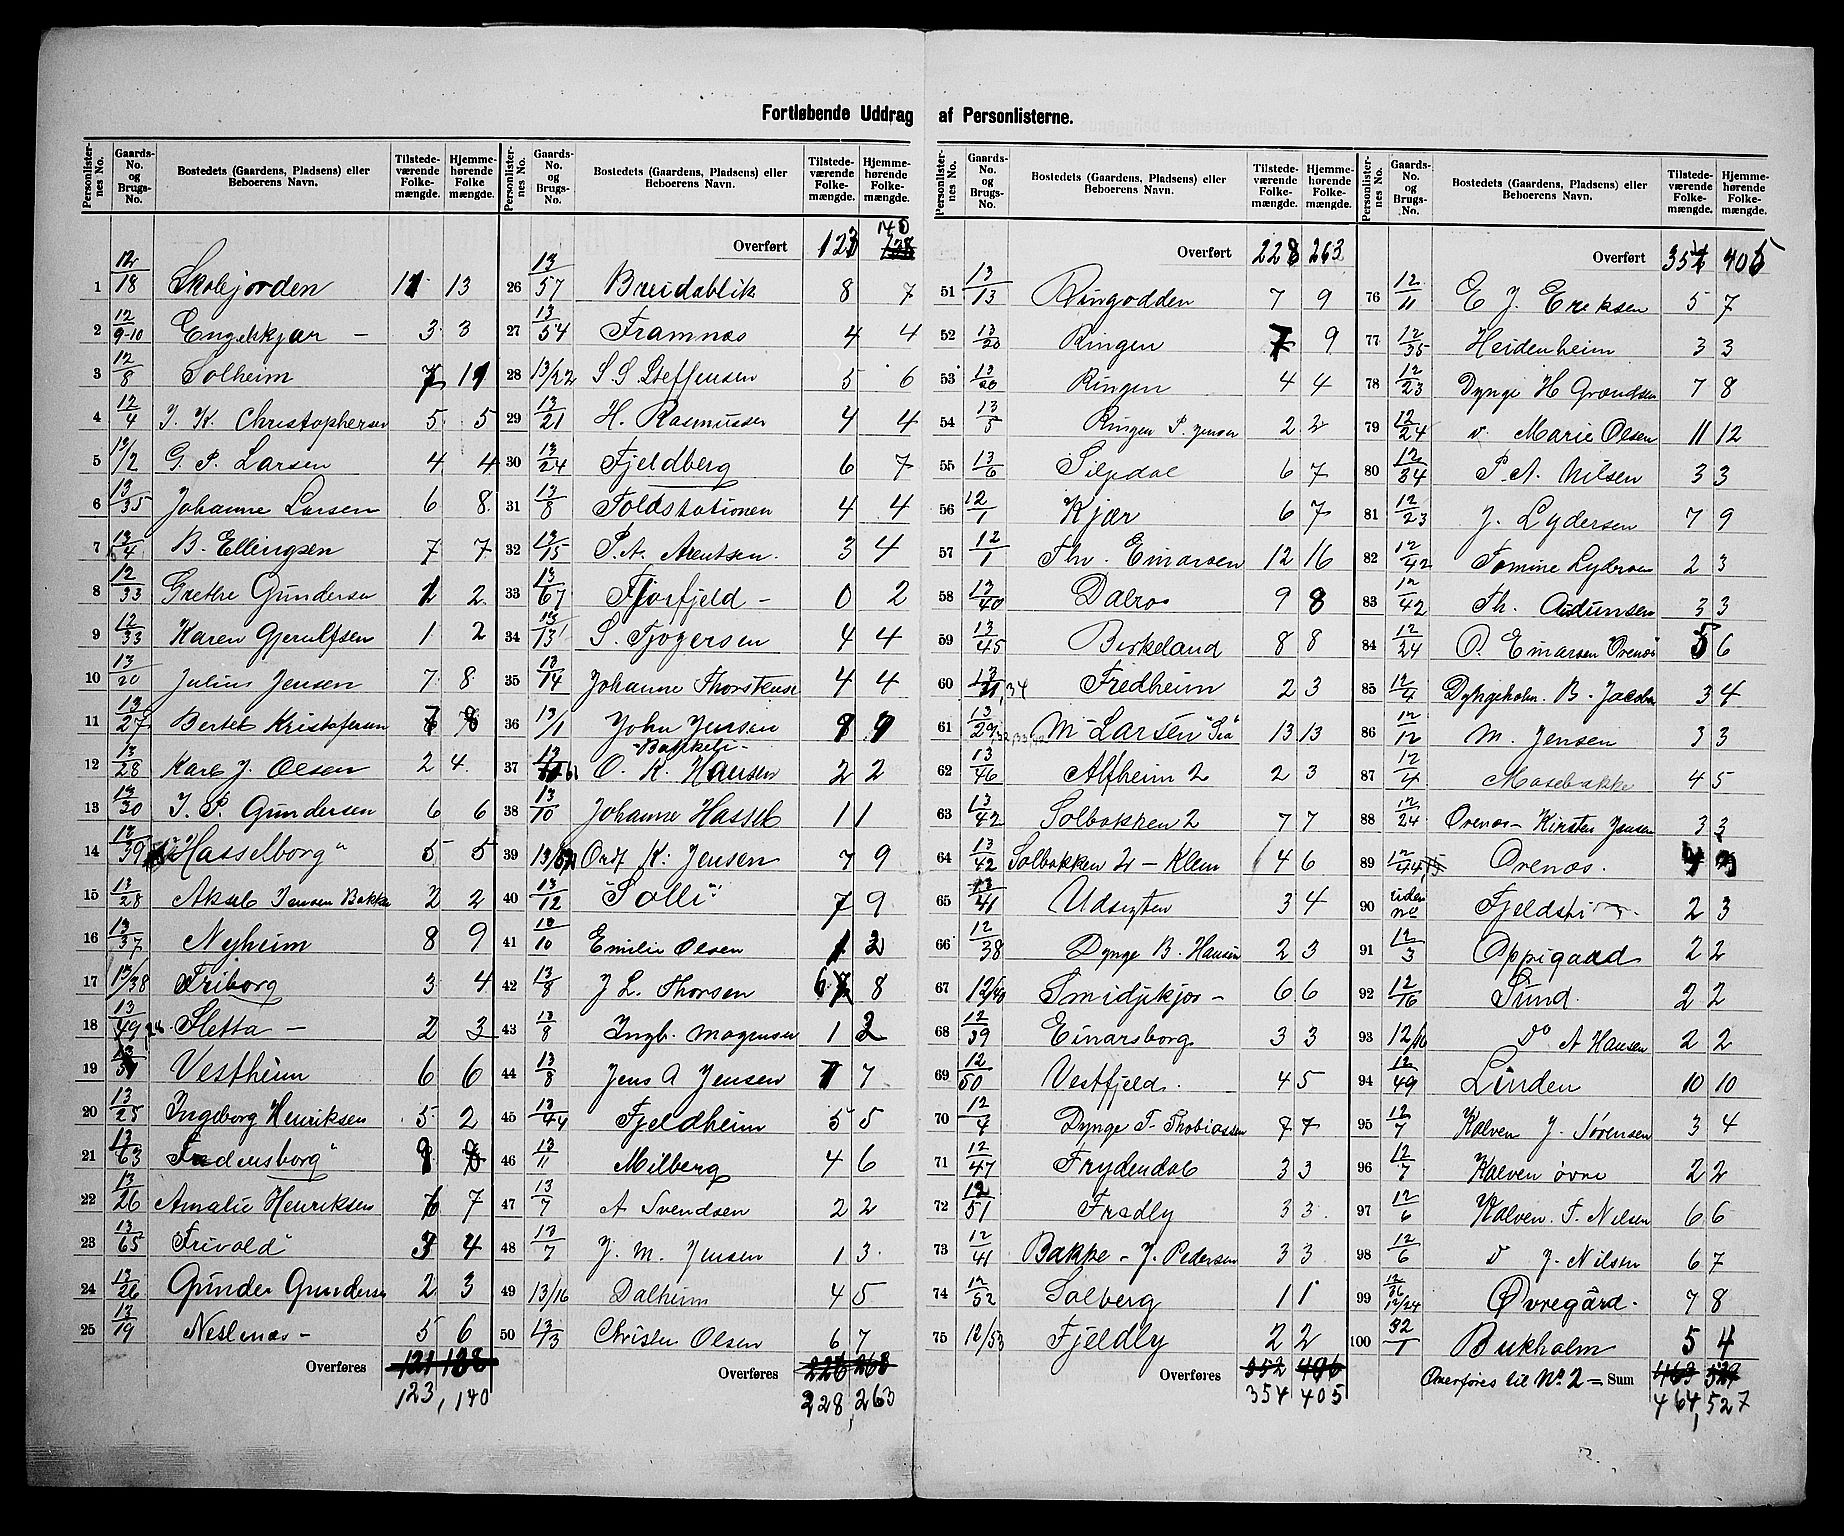 Fortløbende Uddrag af Personlisterne.
Personlister-nes No.
Gaards-No. og Brugs-No.
Bostedets (Gaardens, Pladsens) eller Beboerens Navn.
Tilstede-værende Folke-mængde.
Hjemme-hørende Folke mængde.
1 12/18 Skolejorden 11 13
2 12/9-10 Engelskjær – 3 3
3 12/8 Solheim 7 11
4 12/4 J. K. Christophersen 5 5
5 13/2 G. P. Larsen 4 4
6 13/35 Johanne Larsen 6 8
7 13/4 B. Ellingsen 7 7
8 12/33 Grethe Gundersen 1 2
9 12/33 Karen Gjerulfsen 1 2
10 13/20 Julius Jensen 7 8
11 13/27 Bertel Kristofersen 7 8
12 13/28 Karl J. Olsen 2 4
13 13/30 J. P. Gundersen 6 6
14 13/39 "Hasselborg" 5 5
15 13/28 Aksel Jensen Bakke 2 2
16 13/37 Nyheim 8 9
17 13/38 Friborg 3 4
18 13/49 Sletta – 2 3
19 Vestheim 6 6
20 13/25 Ingeborg Henriksen 5 2
21 13/63 Fredensborg" 8
22 13/26 Amalie Henriksen 7
23 13/65 Frivold" 3 4
24 13/26 Gunder Gundersen 2 3
25 13/19 Neslenæs – 5 6
Overføres 121 138
123, 140
Personlister-nes No.
Gaards-No. og Brugs-No.
Bostedets (Gaardens, Pladsens) eller Beboerens Navn.
Tilstede-værende Folke-mængde.
Hjemme-hørende Folke-mængde.
Overført 123 140 138
26 13/57 Breidablik 8 7
27 13/54 Framnæs 4 4
28 13/22 S. G. Steffensen 5 6
29 13/21 H. Rasmussen 4 4
30 13/24 Fjeldberg 6 7
31 13/8 Toldstationen 4 4
32 13/15 P. A. Arentsen. 3 4
33 13/67 Fjorfjeld – 0 2
34 13/13 S. Tjøgersen 4 4
35 13/14 Johanne Thorsteinsen 4 4
36 13/1 John Jensen
37 "Bakkeli" O. K. Hansen 2 2
38 13/10 Johanne Hassel 1 1
39 Ordf. K. Jensen 7 9
40 13/12 "Solli" 7 9
41 13/10 Emilie Olsen 1 2
42 13/8 J. L. Thorsen 6 8
43 13/8 Ingb. Mogensen 1 2
44 13/8 Jens A Jensen 7 7
45 13/44 Fjeldheim 5 5
46 13/11 Milberg 4 6
47 13/7 A Svendsen 2 2
48 13/7 J. M. Jensen 1 3
49 13/16 Dalheim 4 5
50 13/3 Christen Olsen 6 7
Overføres 226 268
228, 263
Personlister-nes No.
Gaards-No. og Brugs-No.
Bostedets (Gaardens, Pladsens) eller Beboerens Navn.
Tilstede-værende Folke-mængde.
Hjemme-hørende Folke-mængde.
Overført 228 263
51 13/13 Ringodden 7 9
52 13/20 Ringen 7 9
53 13/20 Ringen 4 4
54 13/5 Ringen P. Jensen 2 2
55 13/6 Silpdal 6 7
56 12/1 Kjær 6 7
57 12/1 Thv. Einarsen 12 16
58 13/40 Dalros 9 8
59 13/45 Birkeland 8 8
60 13/31,34 Fredheim 2 3
61 13/29 M. Larsen 13 13
62 13/46 Alfheim 2 2 3
63 13/42 Solbakken 2 7 7
64 13/42 Solbakken 2 – Klem 4 6
65 13/41 Udsigten 3 4
66 12/38 Dynge B. Hansen 2 3
67 12/40 Smidjekjær – 6 6
68 12/39 Einarsborg 3 3
69 12/50 Vestfjeld. 4 5
70 12/4 Dynge T. Thobiassen 7 7
71 12/47 Frydendal 3 3
72 12/51 Fredly 3 3
73 12/41 Bakke – J. Pedersen 3 3
74 12/52 Solberg 1 1
75 12/53 Fjeldly 2 2
Overføres 352 406
354 405
Personlister-nes No.
Gaards-No. og Brugs-No.
Bostedets (Gaardens, Pladsens) eller Beboerens Navn.
Tilstede-værende Folke-mængde.
Hjemme-hørende Folke-mængde.
Overført 354 405
76 12/11 E J. Eriksen 5 7
77 12/35 Heidenheim 3 3
78 12/23 Dynge H Grandsen 7 8
79 12/24 v. Marie Olsen 11 12
80 12/34 P. A. Nilsen 3 3
81 12/23 J. Lydersen 7 9
82 12/42 Tomine Lydersen 2 3
83 12/42 Th. Audunsen 3 3
84 12/24 O. Einarsen Ørenæs 5 6
85 12/4 Dyngeholm. B. Jacobsen 3 4
86 12/12 M. Jensen 3 3
87 12/4 Mosebakke 4 5
88 12/24 Ørenæs – Kirsten Jensen 3 3
89 12/44 Ørenæs.
90 uden no Fjeldsti 2 3
91 12/3 Oppigaard 2 2
92 12/16 Sund. 2 2
93 12/16 Do A Hansen 2 2
94 12/49 Linden 10 10
95 12/7 Kalven J. Sørensen 3 4
96 12/7 Kalven øvre 2 2
97 12/6 Kalven. F. Nilsen 6 6
98 12/6 v J. Nilsen 6 7
99 12/36 12/24 Øvregård. 7 8
100 32/1 Birkholm 5 4
Overføres til No. 2 = Sum 463 529
464, 527